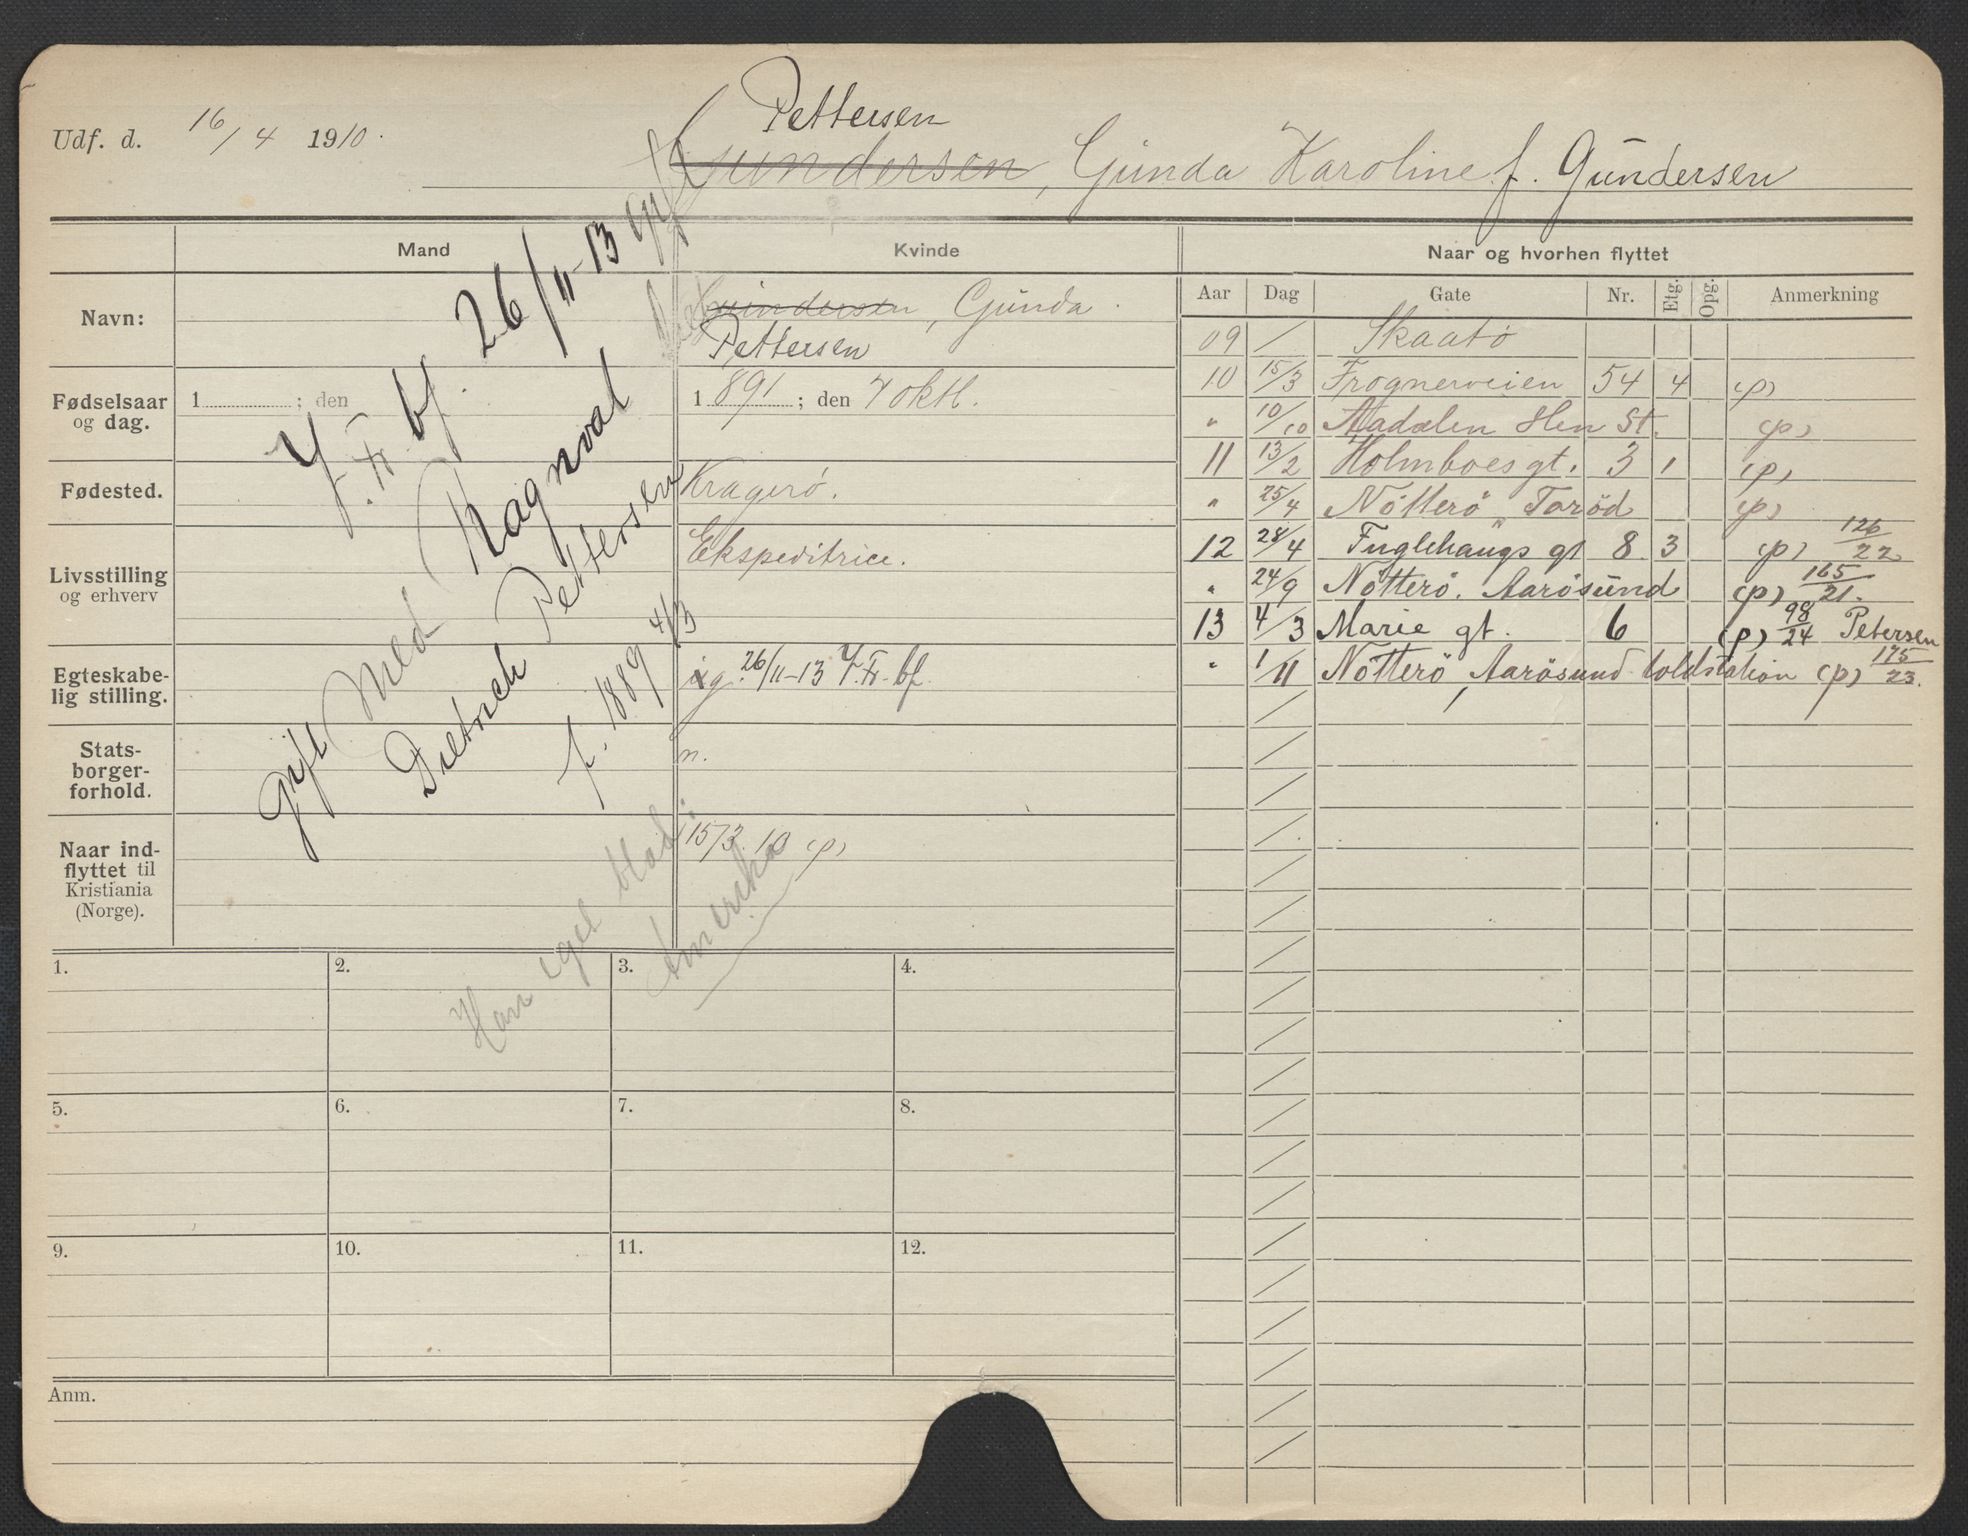 Udf. d. 16/4 1910.
Pettersen
Gundersen, Gunda Karoline f. Gundersen
Mand
Kvinde
Naar og hvorhen flyttet
Navn:
Gundersen, Gunda
Pettersen
Fødselsaar og dag.
1 ; den
1891 ; den 7 oktl.
Fødested.
Kragerø.
Livsstilling og erhverv
Ekspeditrice.
Egteskabelig stilling.
ug. 26/11-13 Y. Fr. bf.
Statsborgerforhold.
n.
Naar indflyttet til Kristiania (Norge).
15/3 10 (p)
Y. Fr. bf. 26/11-13 gift
gift med Ragnval
Dietrich Pettersen
f. 1889 4/3
Har eget blad:
Amerika
Aar Dag Gate Nr. Etg. Opg. Anmerkning
09 / Skaatö
10 15/3 Frognerveien 54 4 (p)
" 10/10 Aadalen Hen St. (p)
11 13/2 Holmboes gt. 3 1 (p)
" 25/4 Nötterö, Taröd (p)
12 28/4 Fuglehaugs gt 8 3 (p) 126/22
" 24/9 Nötterö. Aarösund (p) 165/21.
13 4/3 Marie gt. 6 (p) 98/24 Petersen
" 1/11 Nötterö, Aarösund toldstation (p) 175/23.
1. 2. 3. 4.
5. 6. 7. 8.
9. 10. 11. 12.
Anm.